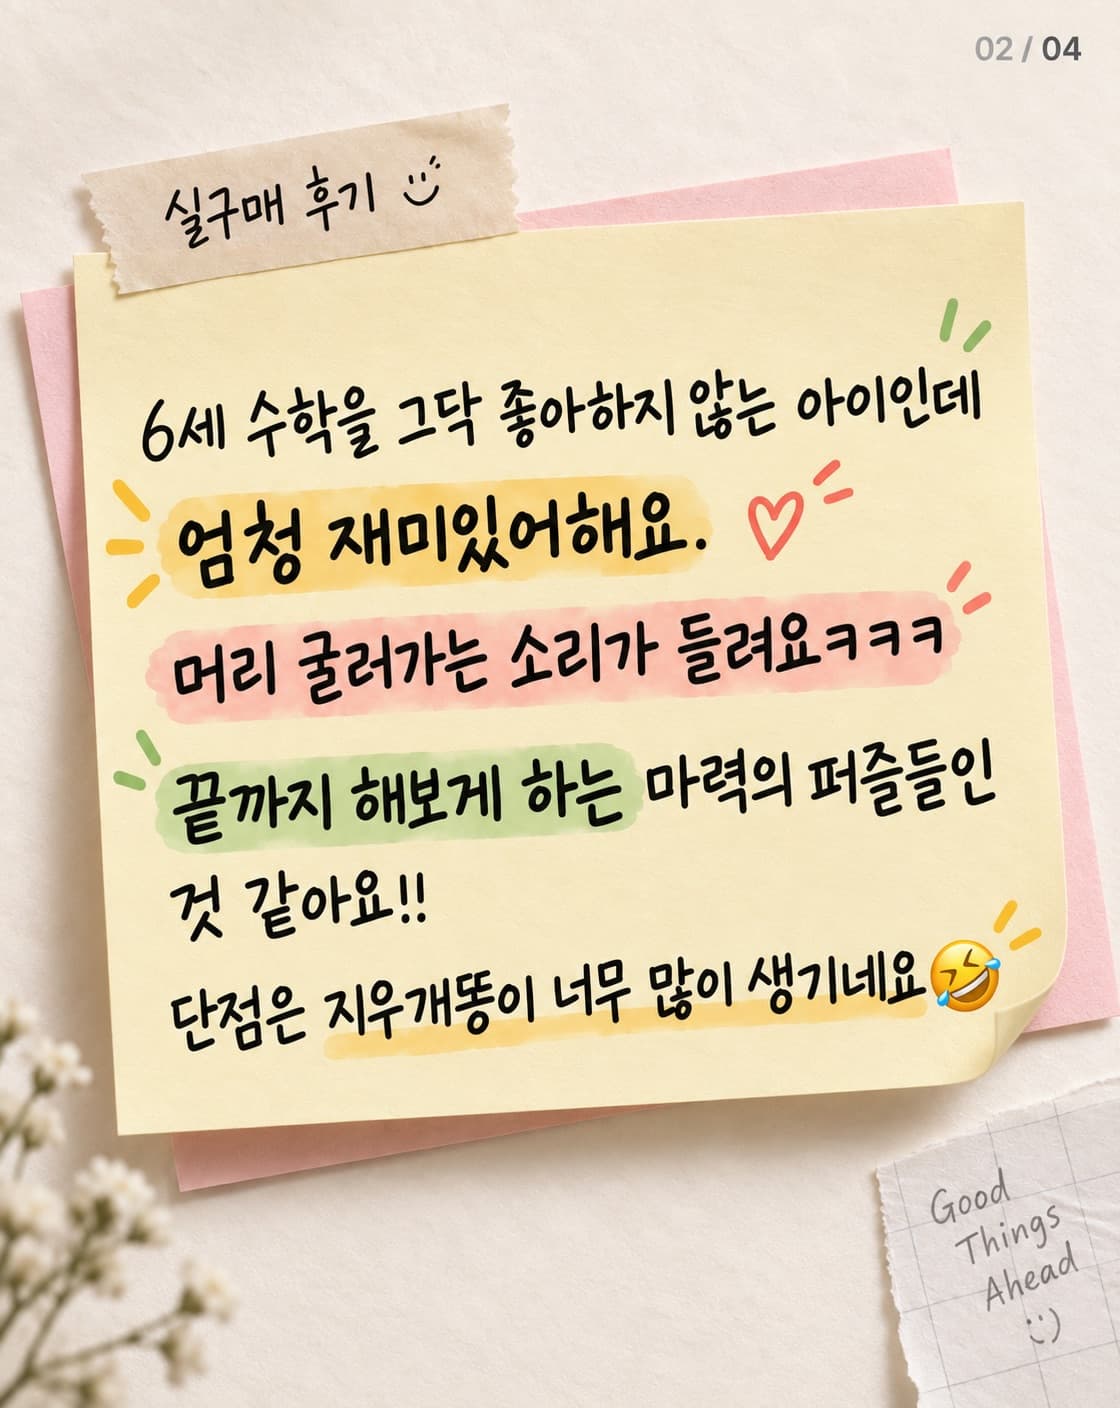 02 / 04
실구매 후기
6세 수학을 그닥 좋아하지 않는 아이인데
엄청 재미있어해요.
머리 굴러가는 소리가 들려요ㅋㅋㅋ
끝까지 해보게 하는 마력의 퍼즐들인
것 같아요!!
단점은 지우개똥이 너무 많이 생기네요🤣
Good
Things
Ahead
:)